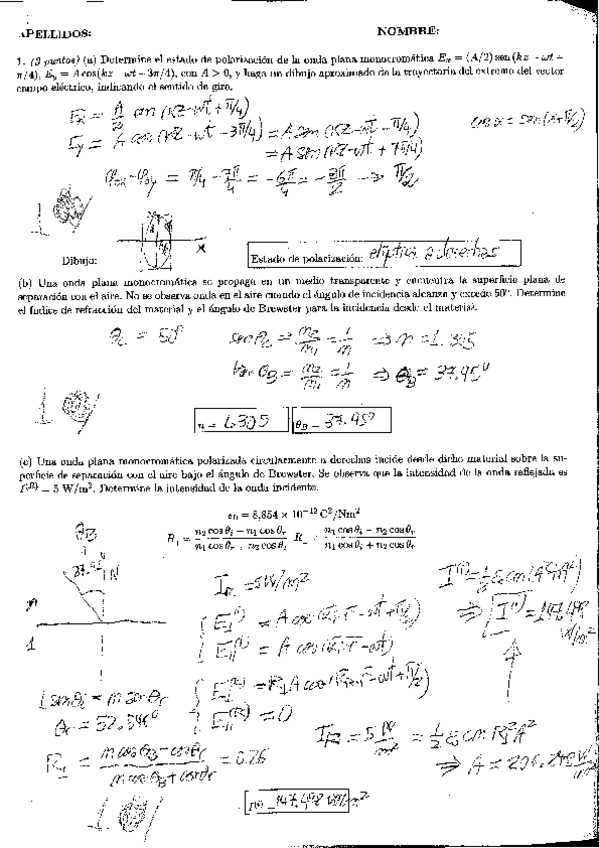 APELLIDOS: NOMBRE:
1. (3 puntos) (a) Determine el estado de polarización de la onda plana monocromática Eₓ = (A/2) sen(kz − ωt +
π/4), E_y = A cos(kz − ωt − 3π/4), con A > 0, y haga un dibujo aproximado de la trayectoria del extremo del vector
campo eléctrico, indicando el sentido de giro.
Eₓ = A/2 sen (kz−ωt + π/4)
E_y = A cos (kz − ωt − 3π/4) = A sen (kz − ωt − π/4)
cos x = sen(x+π/2)
= A sen (kz − ωt + 7π/4)
φ₀ₓ − φ₀y = π/4 − 7π/4 = −6π/4 = −3π/2 → π/2
1
x
Dibujo:
Estado de polarización: elíptica a derechas
(b) Una onda plana monocromática se propaga en un medio transparente y encuentra la superficie plana de
separación con el aire. No se observa onda en el aire cuando el ángulo de incidencia alcanza y excede 50°. Determine
el índice de refracción del material y el ángulo de Brewster para la incidencia desde el material.
θc = 50°
sen θc = n₂/n₁ = 1/n ⇒ n = 1.305
tan θB = n₂/n₁ = 1/n ⇒ θB = 37.45°
1
n = 1.305 θB = 37.45°
(c) Una onda plana monocromática polarizada circularmente a derechas incide desde dicho material sobre la su-
perficie de separación con el aire bajo el ángulo de Brewster. Se observa que la intensidad de la onda reflejada es
I⁽ᴿ⁾ = 5 W/m². Determine la intensidad de la onda incidente.
ε₀ = 8,854 × 10⁻¹² C²/Nm²
R∥ = (n₂ cos θᵢ − n₁ cos θᵣ)/(n₁ cos θᵣ + n₂ cos θᵢ) R⊥ = (n₁ cos θᵢ − n₂ cos θᵣ)/(n₁ cos θᵢ + n₂ cos θᵣ)
θB
N
n
1
I_R = 5 W/m²
E⊥⁽ᴵ⁾ = A cos (
E∥⁽ᴵ⁾ = A cos (
⇒ I⁽ᴵ⁾ = 147.498 W/m²
1 sen θᵢ = n sen θᵣ
E∥⁽ᴿ⁾ = 0
I_R = 5 W/m² = 1/2 ε₀ c n R⊥² A²
R⊥ = (n cos θB − cos θr)/(n cos θB + cos θr) = 0.26
1
I⁽ᴵ⁾ = 147.498 W/m²